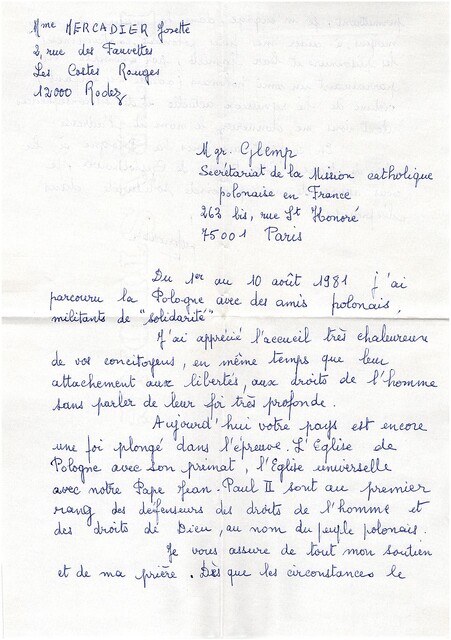 Mme MERCADIER Josette
2, rue des Fauvettes
Les Costes Rouges
12000 Rodez
Mgr. Glemp
Secrétariat de la Mission catholique
polonaise en France
263 bis, rue St Honoré
75001 Paris
Du 1er au 10 août 1981 j'ai
parcouru la Pologne avec des amis polonais,
militants de "solidarité"
J'ai apprécié l'accueil très chaleureux
de vos concitoyens, en même temps que leur
attachement aux libertés, aux droits de l'homme
sans parler de leur foi très profonde.
Aujourd'hui votre pays est encore
une foi plongé dans l'épreuve. L'Eglise de
Pologne avec son primat, l'Eglise universelle
avec notre Pape Jean-Paul II sont au premier
rang des défenseurs des droits de l'homme et
des droits de Dieu, au nom du peuple polonais.
Je vous assure de tout mon soutien
et de ma prière. Dès que les circonstances le